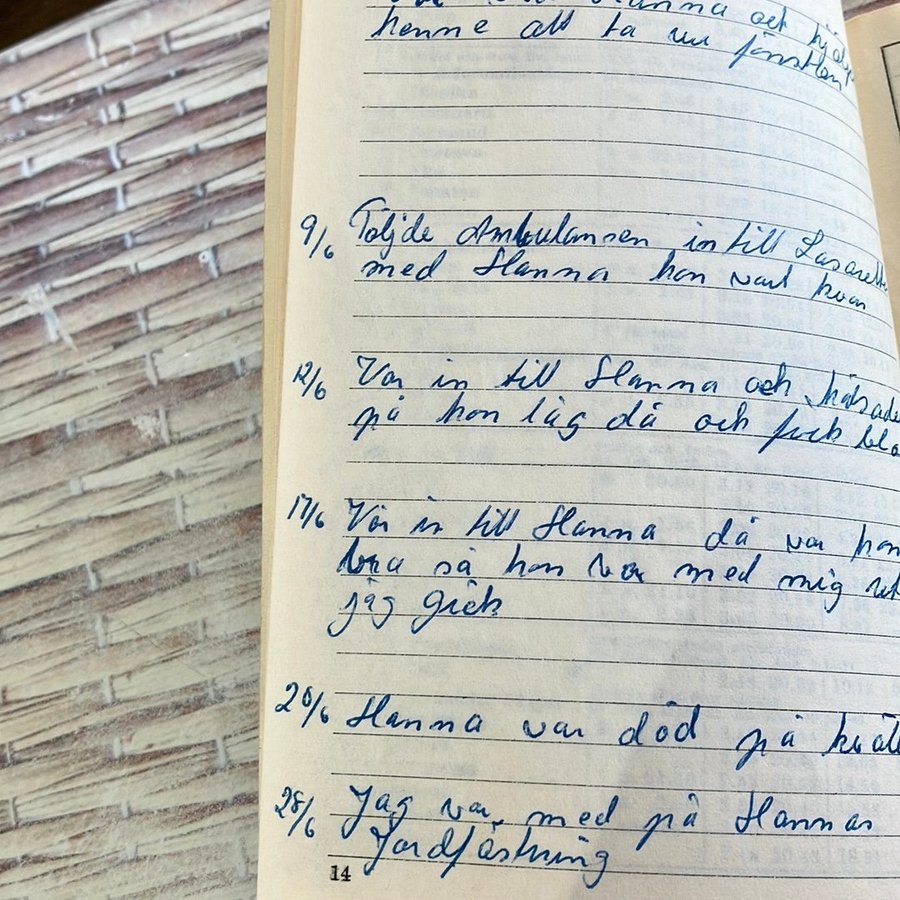 Hanna och hjälp
henne att ta ur fönstren
9/6 Följde Ambulansen in till Lasarette
med Hanna hon vart kvar
12/6 Var in till Hanna och hälsade
på hon låg då och fick blo
17/6 Var in till Hanna då var hon
bra så hon var med mig
jag gick
20/6 Hanna var död på kväll
28/6 Jag var med på Hannas
Jordfästning
14